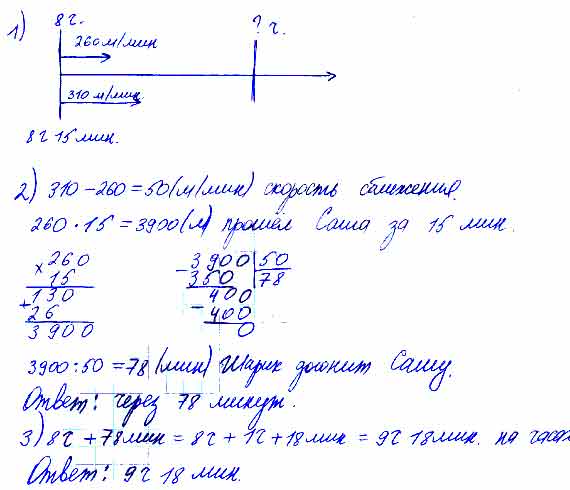 1) 8 ч. ? ч.
260 м/мин
310 м/мин.
8 ч 15 мин.
2) 310 - 260 = 50 (м/мин) скорость сближения.
260 · 15 = 3900 (м) прошёл Саша за 15 мин.
× 260
15
+ 130
26
3900
- 3900 | 50
350 78
- 400
400
0
3900 : 50 = 78 (мин) Шарик догонит Сашу.
Ответ: через 78 минут.
3) 8 ч + 78 мин = 8 ч + 1 ч + 18 мин = 9 ч 18 мин. на часах
Ответ: 9 ч 18 мин.